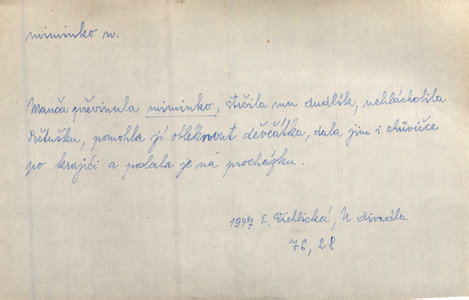 miminko n.
Manča převinula miminko, strčila mu dudlík, uchlácholila
Bětušku, pomohla jí obléknout děvčátka, dala jim i chůvičce
po krajíci a poslala je na procházku.
1947 E. Vrchlická, U divadla
76, 28